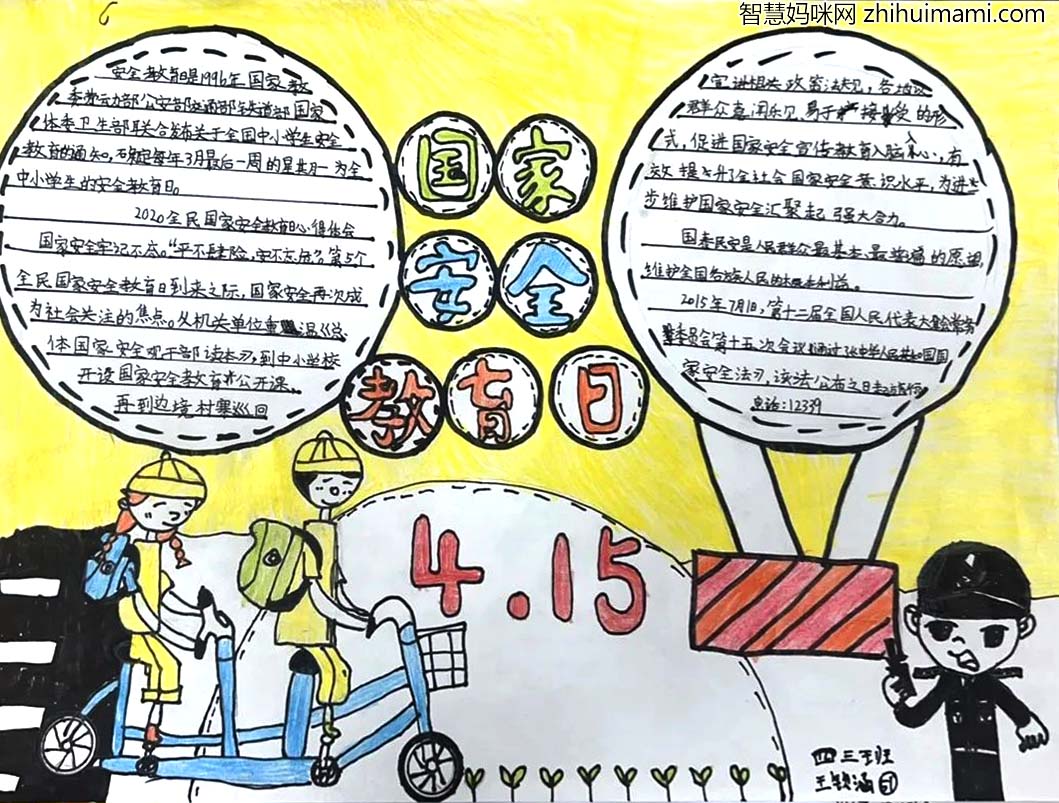 智慧妈咪网 zhihuimami.com
安全教育日是1996年国家教
委劳动部公安部交通部铁道部国家
体委卫生部联合发布关于全国中小学生安全
教育的通知,确定每年3月最后一周的星期一为全
中小学生的安全教育日。
2020全民国家安全教育心得体会
国家安全牢记不忘。"平不肆险,安不忘危"。第5个
全民国家安全教育日到来之际,国家安全再次成
为社会关注的焦点。从机关单位重温《总
体国家安全观干部读本》,到中小学校
开设国家安全教育公开课。
再到边境村寨巡回
国家
安全
教育日
宣讲相关政策法规,各地以
群众喜闻乐见、易于接受的形
式,促进国家安全宣传教育入脑入心,有
效提升了全社会国家安全意识水平,为进
步维护国家安全汇聚起强大合力。
国泰民安是人民群众最基本、最普遍的愿望。
维护全国各族人民的根本利益。
2015年7月1日,第十二届全国人民代表大会常务
委员会第十五次会议通过《中华人民共和国国
家安全法》,该法公布之日起施行
电话:12339
4.15
四三王班
王 涵 51